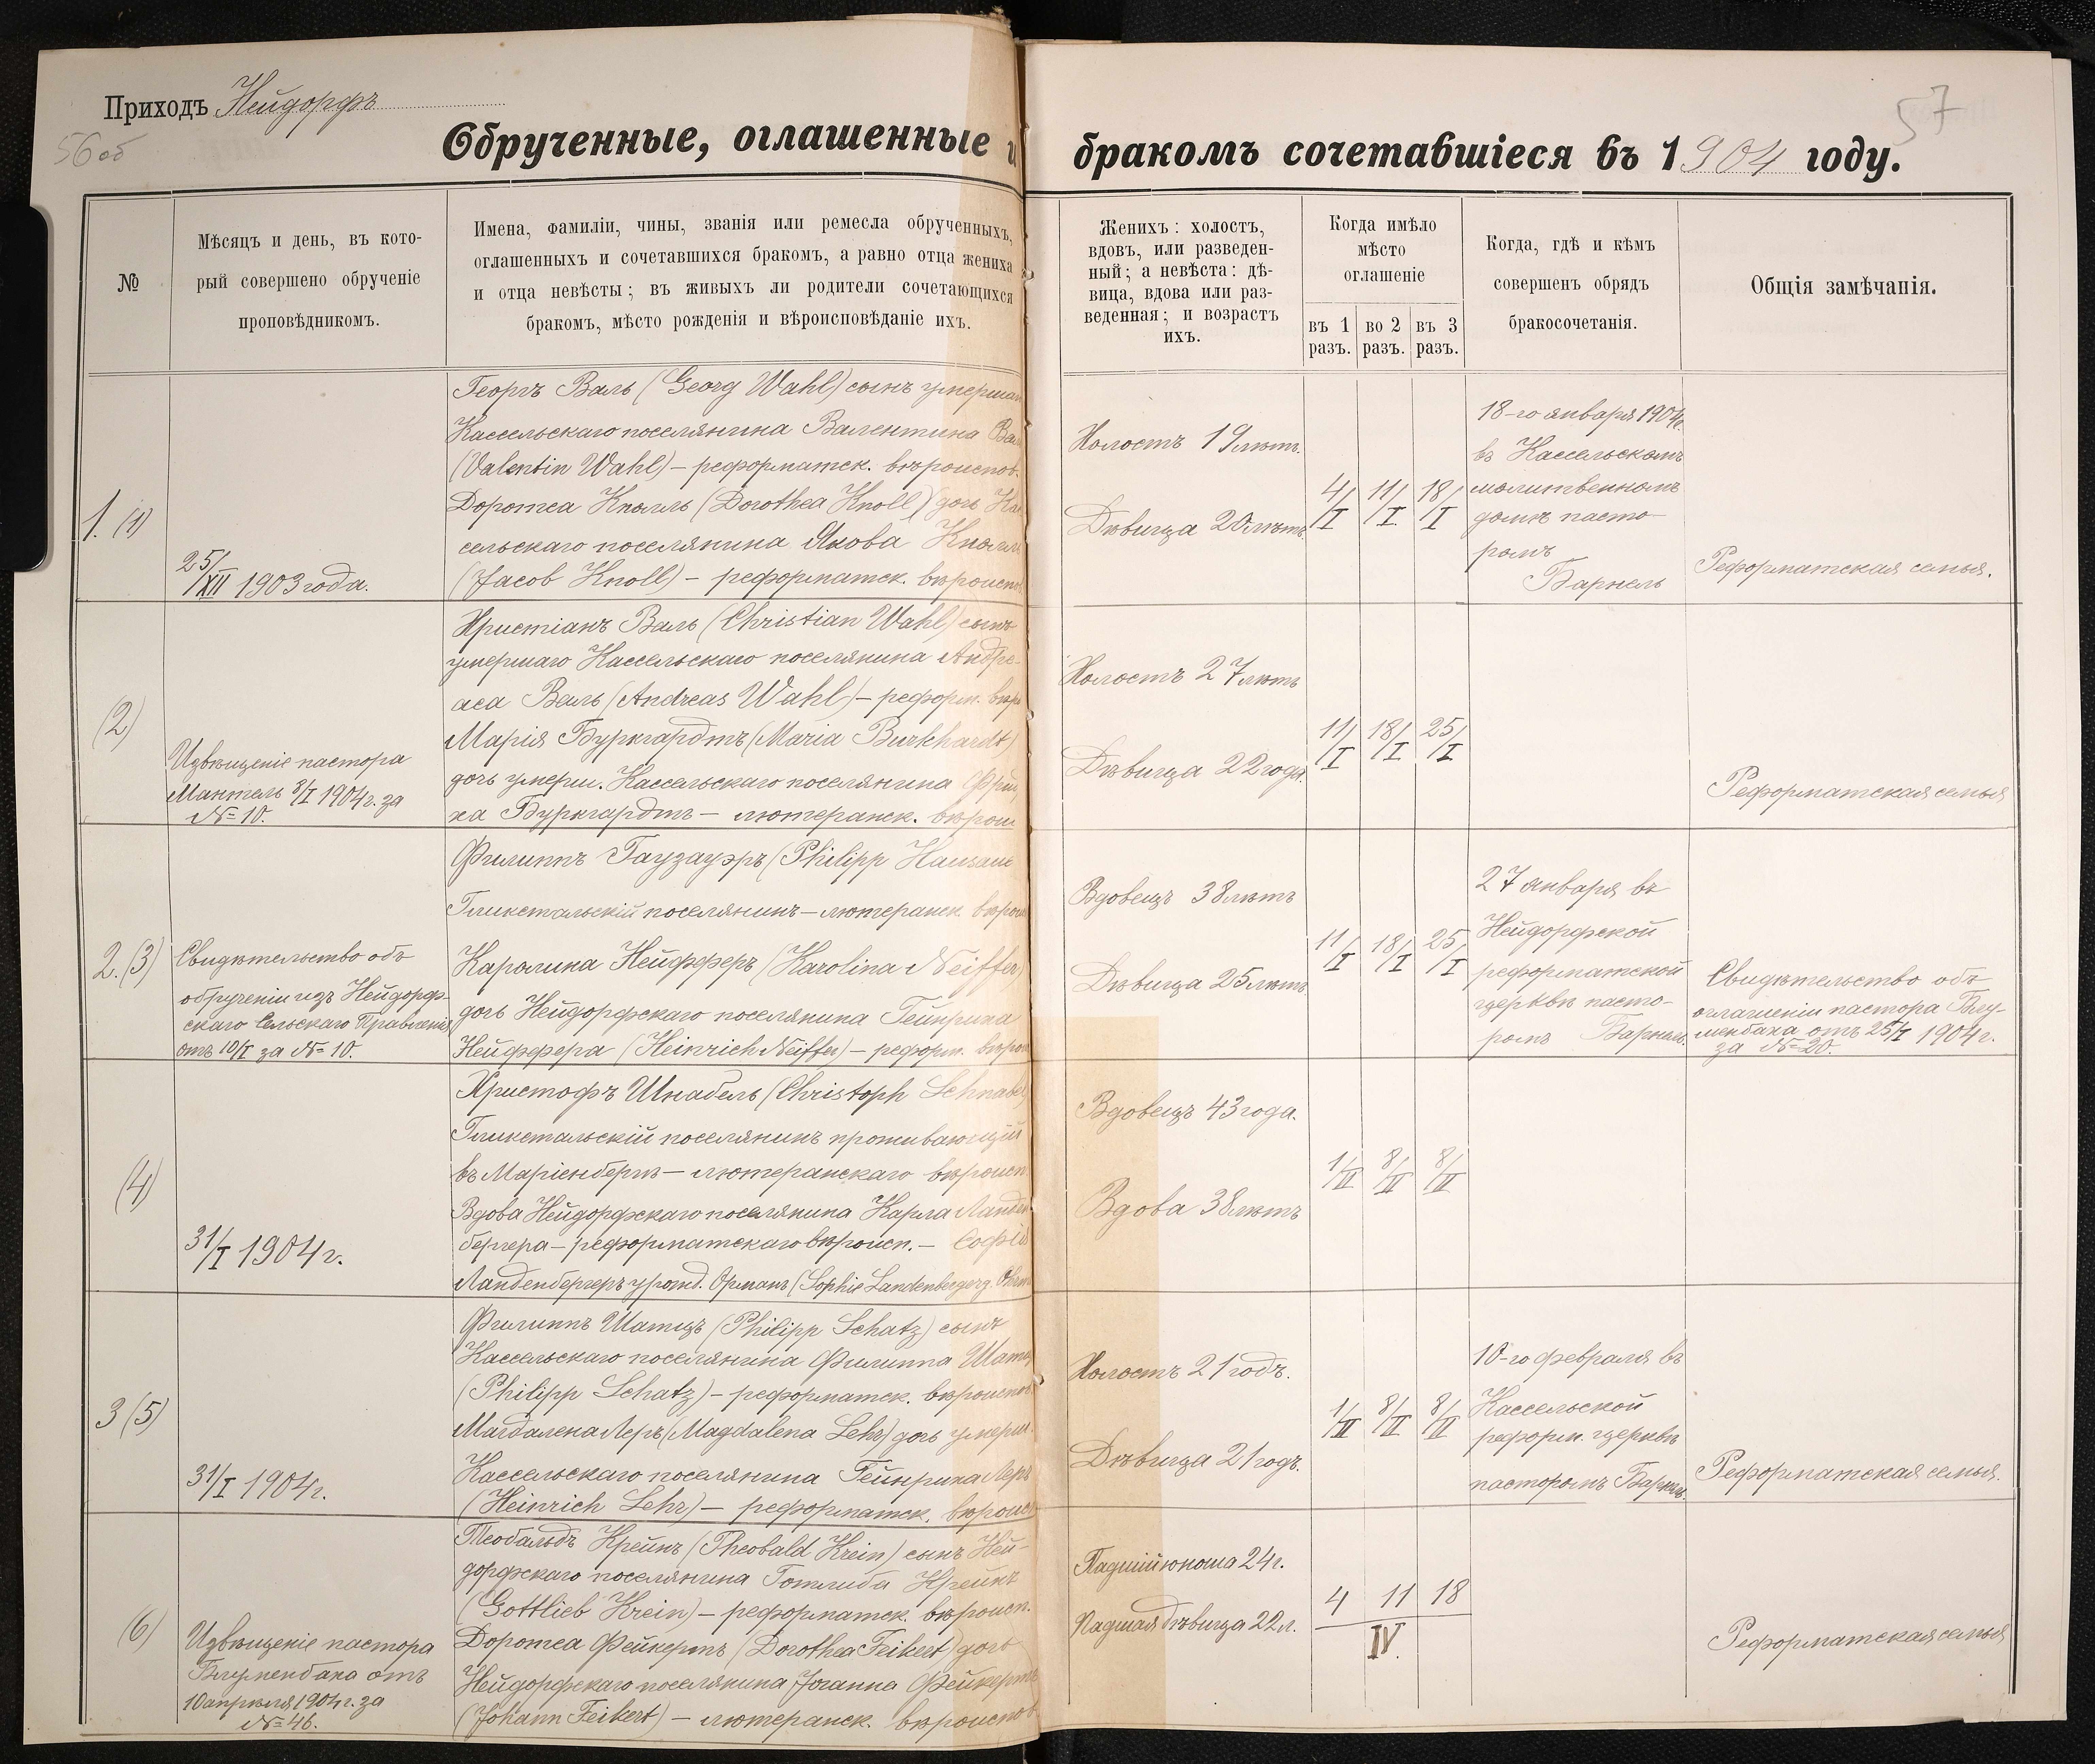 Приходъ Нейдорфъ
56 об
57
Обрученные, оглашенные и бракомъ сочетавшіеся въ 1904 году.
№
Мѣсяцъ и день, въ кото-
рый совершено обрученіе
проповѣдникомъ.
Имена, фамиліи, чины, званія или ремесла обрученныхъ,
оглашенныхъ и сочетавшихся бракомъ, а равно отца жениха
и отца невѣсты; въ живыхъ ли родители сочетающихся
бракомъ, мѣсто рожденія и вѣроисповѣданіе ихъ.
Женихъ: холостъ,
вдовъ, или разведен-
ный; а невѣста: дѣ-
вица, вдова или раз-
веденная; и возрастъ
ихъ.
Когда имѣло
мѣсто
оглашеніе
въ 1 разъ.
во 2 разъ.
въ 3 разъ.
Когда, гдѣ и кѣмъ
совершенъ обрядъ
бракосочетанія.
Общія замѣчанія.
1. (1)
25/XII 1903 года.
Георгъ Валь (Georg Wahl) сынъ умерша
Кассельскаго поселянина Валентина Ва
(Valentin Wahl) – реформатск. вѣроиспов.
Доротеа Кнолль (Dorothea Knoll) дочь Ка
сельскаго поселянина Якова Кнолл
(Jacob Knoll) – реформатск. вѣроиспов
Холостъ 19 лѣтъ.
Дѣвица 20 лѣтъ.
4/I 11/I 18/I
18-го января 1904 г.
въ Кассельскомъ
молитвенномъ
домѣ пасто-
ромъ
Барнель
Реформатская семья.
(2)
Извѣщеніе пастора
Мантель 8/I 1904 г. за
№ 10.
Христіанъ Валь (Christian Wahl) сынъ
умершаго Кассельскаго поселянина Андре-
аса Валь (Andreas Wahl) – реформ. вѣр
Марія Бургардтъ (Maria Burkhardt)
дочь умерш. Кассельскаго поселянина Фрид
ха Бургардтъ – лютеранск. вѣрои
Холостъ 27 лѣтъ
Дѣвица 22 года.
11/I 18/I 25/I
Реформатская семья
2. (3)
Свидѣтельство объ
обрученіи изъ Нейдорф-
скаго Сельскаго Правленія
отъ 10/I за № 10.
Филиппъ Гаузауэръ (Philipp Hausau
Глюкстальскій поселянинъ – лютеранск. вѣрои
Каролина Нейфферъ (Karolina Neiffer)
дочь Нейдорфскаго поселянина Гейнриха
Нейффера (Heinrich Neiffer) – реформ. вѣрои
Вдовецъ 38 лѣтъ
Дѣвица 25 лѣтъ.
11/I 18/I 25/I
27 января въ
Нейдорфской
реформатской
церквѣ пасто-
ромъ Барнель.
Свидѣтельство объ
оглашеніи пастора Блу-
менбаха отъ 25/I 1904 г.
за № 20.
(4)
31/I 1904 г.
Христофъ Шнабель (Christoph Schnabel)
Глюкстальскій поселянинъ проживающій
въ Маріенбергѣ – лютеранскаго вѣроисп
Вдова Нейдорфскаго поселянина Карла Ланден
бергера – реформатскаго вѣроисп. – Софія
Ланденбергеръ урожд. Орманъ (Sophie Landenberger g. Ohrm
Вдовецъ 43 года.
Вдова 38 лѣтъ
1/II 8/II 8/II
3 (5)
31/I 1904 г.
Филиппъ Шатцъ (Philipp Schatz) сынъ
Кассельскаго поселянина Филиппа Шатц
(Philipp Schatz) – реформатск. вѣроиспов
Магдалена Леръ (Magdalena Lehr) дочь умерш.
Кассельскаго поселянина Гейнриха Леръ
(Heinrich Lehr) – реформатск. вѣроисп
Холостъ 21 годъ.
Дѣвица 21 годъ.
1/II 8/II 8/II
10-го февраля въ
Кассельской
реформ. церквѣ
пасторомъ Барнель.
Реформатская семья.
(6)
Извѣщеніе пастора
Блуменбаха отъ
10 апрѣля 1904 г. за
№ 46.
Теобальдъ Крейнъ (Theobald Krein) сынъ Ней-
дорфскаго поселянина Готлиба Крейнъ
(Gottlieb Krein) – реформатск. вѣроисп.
Доротеа Фейкертъ (Dorothea Feikert) дочь
Нейдорфскаго поселянина Іоганна Фейкертъ
(Johann Feikert) – лютеранск. вѣроиспов
Падшій юноша 24 г.
Падшая дѣвица 22 л.
4 11 18
IV.
Реформатская семья